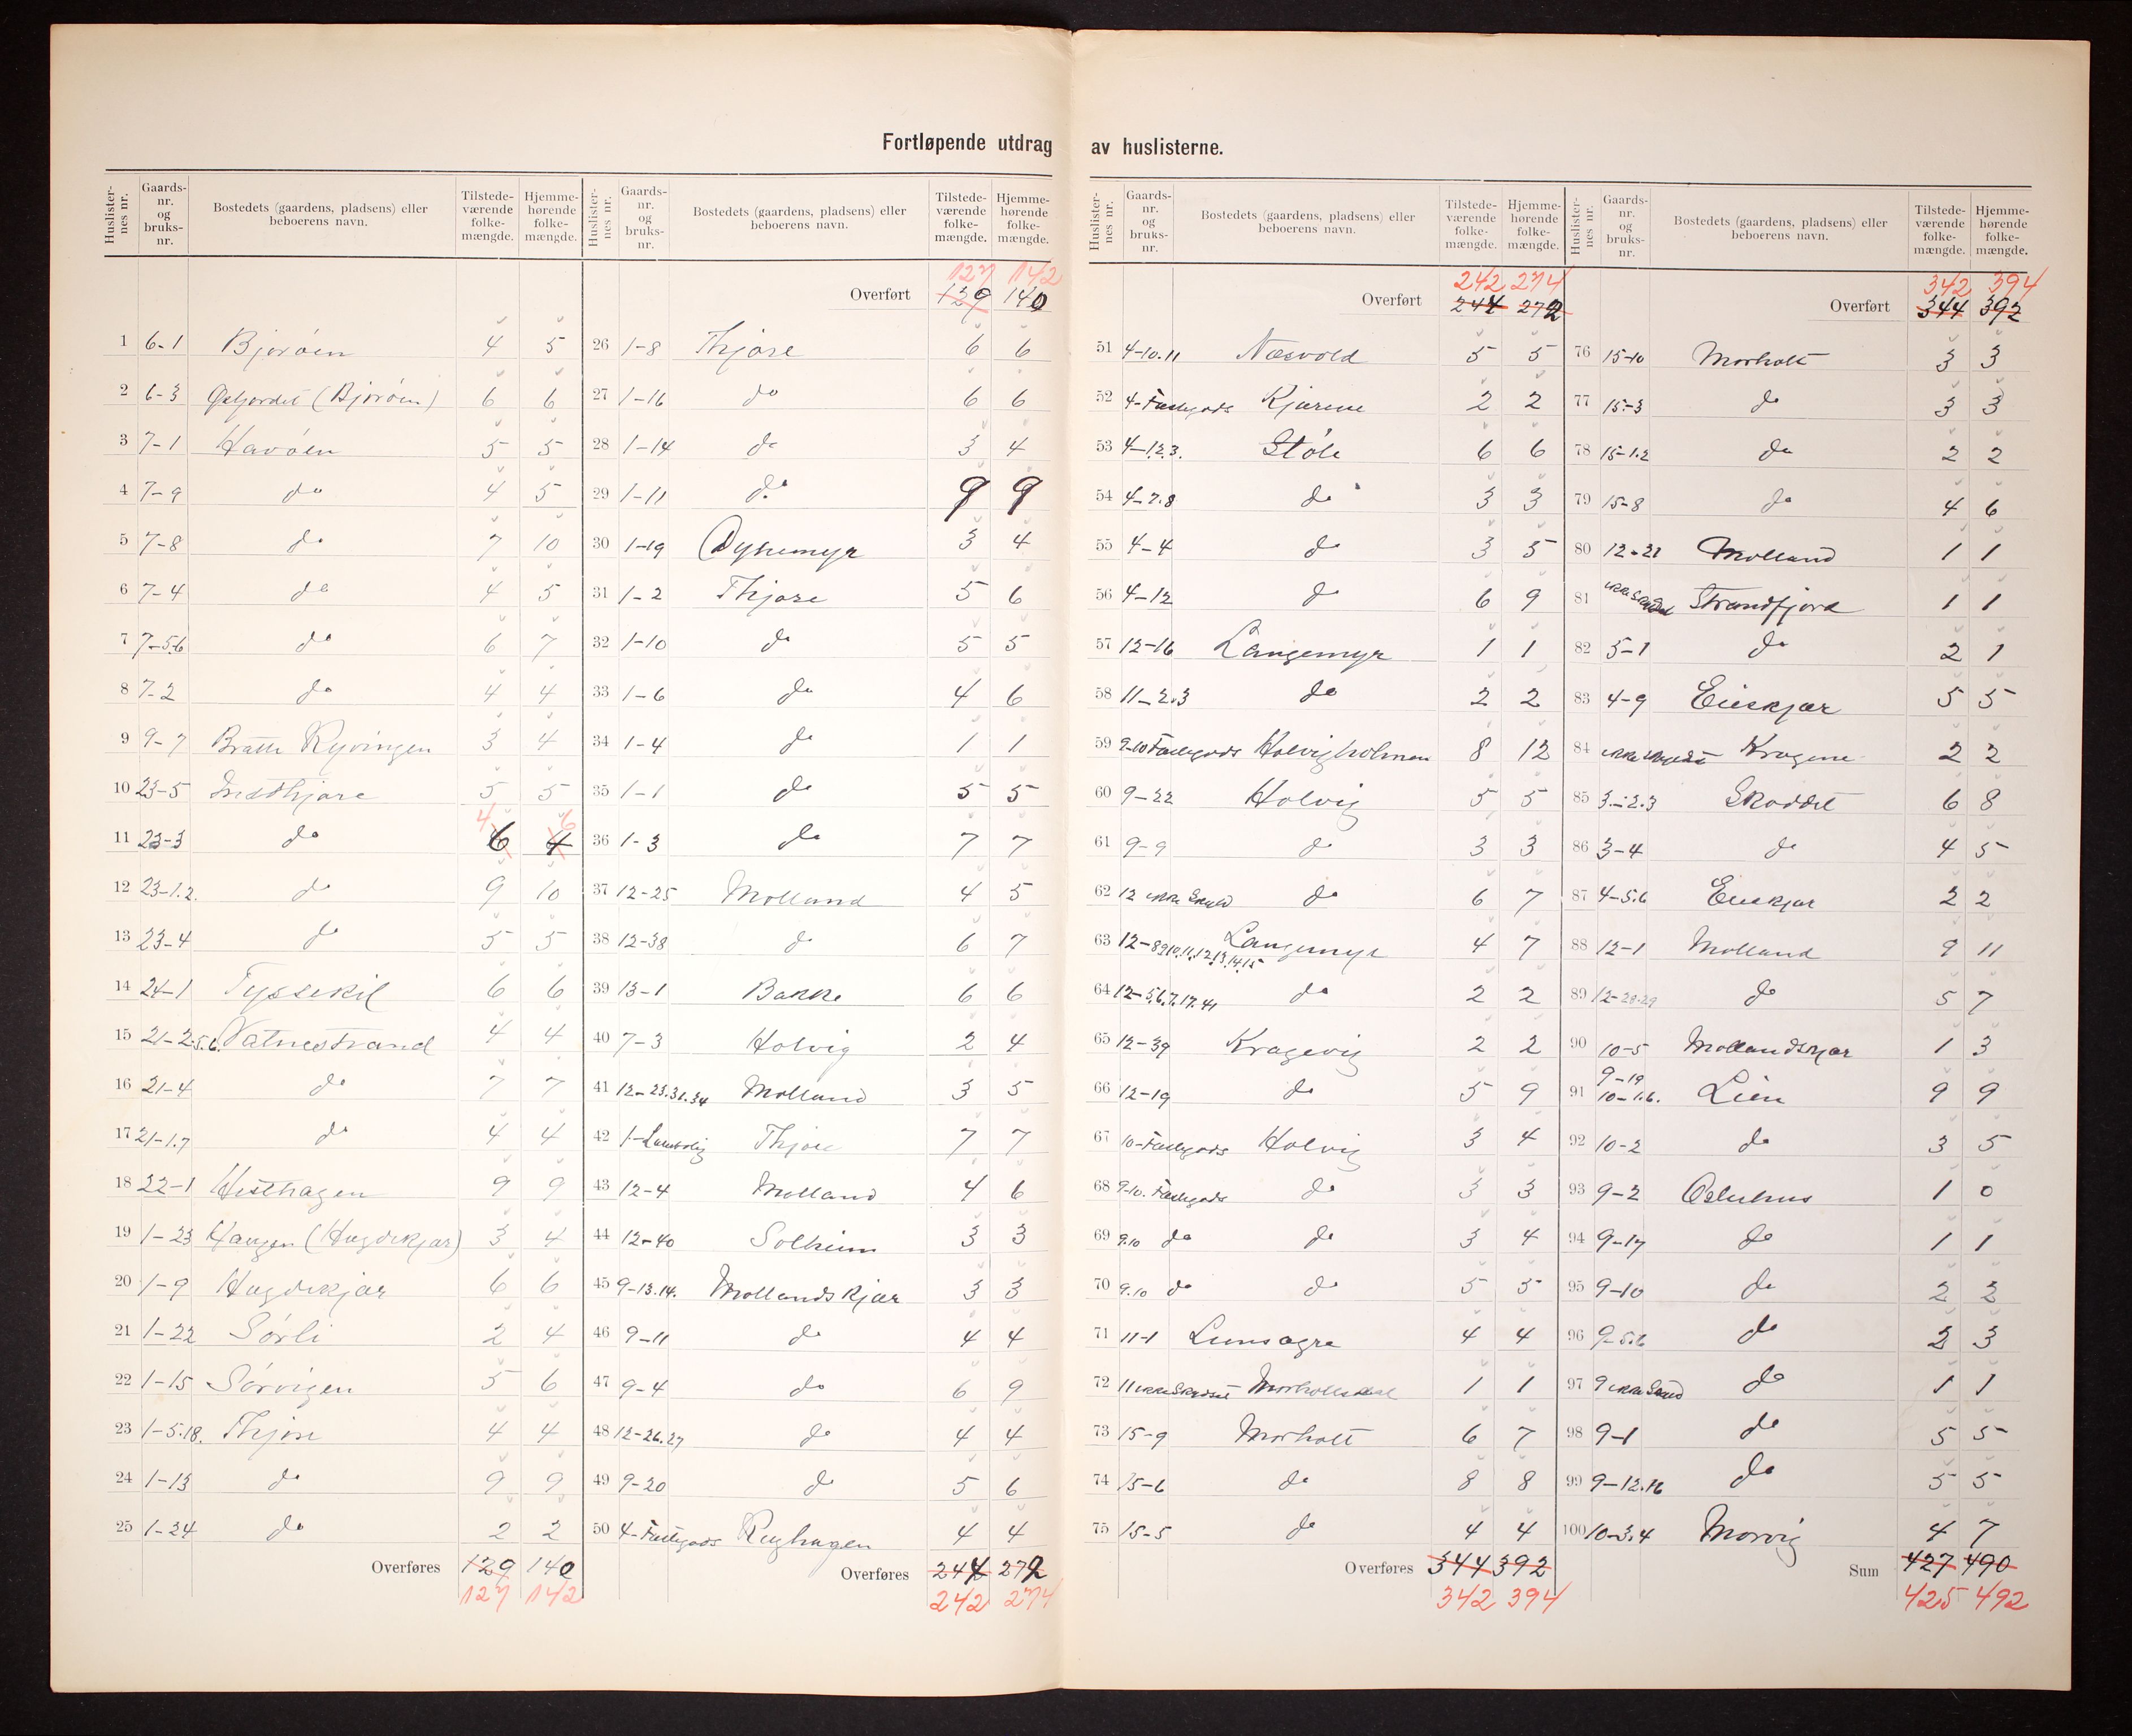 Fortløpende utdrag av huslisterne.
Huslisternes nr. Gaardsnr. og bruksnr. Bostedets (gaardens, pladsens) eller beboerens navn. Tilstedeværende folkemængde. Hjemmehørende folkemængde.
1 6-1 Bjorøen 4 5
2 6-3 (Bjorøen) 6 6
3 7-1 Havøen 5 5
4 7-9 do 4 5
5 7-8 do 7 10
6 7-4 do 4 5
7 7-5.6 do 6 7
8 7-2 do 4 4
9 9-7 Bratte Ryvingen 3 4
10 23-5 Indthjore 5 5
11 23-3 do 6 4 4 6
12 23-1.2. do 9 10
13 23-4 do 5 5
14 24-1 Tyssekil 6 6
15 21-2.5.6. Vatnestrand 4 4
16 21-4 do 7 7
17 21-1.7 do 4 4
18 22-1 Hesthagen 9 9
19 1-23 Haugen (Hugdekjær) 3 4
20 1-9 Hugdekjær 6 6
21 1-22 Sørli 2 4
22 1-15 Sørvigen 5 6
23 1-5.18. Thjøre 4 4
24 1-13 do 9 9
25 1-24 do 2 2
Overføres 129 140
127 142
Huslisternes nr. Gaardsnr. og bruksnr. Bostedets (gaardens, pladsens) eller beboerens navn. Tilstedeværende folkemængde. Hjemmehørende folkemængde.
127 142
Overført 129 140
26 1-8 Thjøre 6 6
27 1-16 do 6 6
28 1-14 do 3 4
29 1-11 do 9 9
30 1-19 Dynemyr 3 4
31 1-2 Thjøre 5 6
32 1-10 do 5 5
33 1-6 do 4 6
34 1-4 do 1 1
35 1-1 do 5 5
36 1-3 do 7 7
37 12-25 Molland 4 5
38 12-38 do 6 7
39 13-1 Bakke 6 6
40 7-3 Holvig 2 4
41 12-23.31.34 Molland 3 5
42 1- Thjøre 7 7
43 12-4 Molland 4 6
44 12-40 Solheim 3 3
45 9-13.14. Mollandskjær 3 3
46 9-11 do 4 4
47 9-4 do 6 9
48 12-26.27 do 4 4
49 9-20 do 5 6
50 4-Fællegods Rughagen 4 4
Overføres 244 272
242 274
Huslisternes nr. Gaardsnr. og bruksnr. Bostedets (gaardens, pladsens) eller beboerens navn. Tilstedeværende folkemængde. Hjemmehørende folkemængde.
242 274
Overført 244 272
51 4-10.11 Næsvold 5 5
52 4-Fællegods Kjærene 2 2
53 4-1.2.3. Støle 6 6
54 4-7.8 do 3 3
55 4-4 do 3 5
56 4-12 do 6 9
57 12-16 Langemyr 1 1
58 11-2.3 do 2 2
59 9-10 Fællegods Holvigholmen 8 12
60 9-22 Holvig 5 5
61 9-9 do 3 3
62 12 ikke skyld do 6 7
63 12-8.9.10.11.12.13.14.15 Langemyr 4 7
64 12-5.6.7.17.41 do 2 2
65 12-39 Kragevig 2 2
66 12-19 do 5 9
67 10-Fællegods Holvig 3 4
68 9-10. Fællegods do 3 3
69 9.10 do do 3 4
70 9.10 do do 5 5
71 11-1 Lunsagre 4 4
72 11 ikke skyldsat 1 1
73 15-9 Morholt 6 7
74 15-6 do 8 8
75 15-5 do 4 4
Overføres 344 392
342 394
Huslisternes nr. Gaardsnr. og bruksnr. Bostedets (gaardens, pladsens) eller beboerens navn. Tilstedeværende folkemængde. Hjemmehørende folkemængde.
342 394
Overført 344 392
76 15-10 Morholt 3 3
77 15-3 do 3 3
78 15-1.2 do 2 2
79 15-8 do 4 6
80 12-21 Molland 1 1
81 ikke skyldsat Strandfjord 1 1
82 5-1 do 2 1
83 4-9 Eieskjær 5 5
84 ikke skyldsat Kragene 2 2
85 3-2.3 Skoddet 6 8
86 3-4 do 4 5
87 4-5.6 Eieskjær 2 2
88 12-1 Molland 9 11
89 12-28.29 do 5 7
90 10-5 Mollandskjær 1 3
91 9-19 10-1.6. Lien 9 9
92 10-2 do 3 5
93 9-2 Osluhus 1 0
94 9-17 do 1 1
95 9-10 do 2 2
96 9-5.6 do 2 3
97 9 ikke skyld do 1 1
98 9-1 do 5 5
99 9-12.16 do 5 5
100 10-3.4 Morvig 4 7
Sum 427 490
425 492